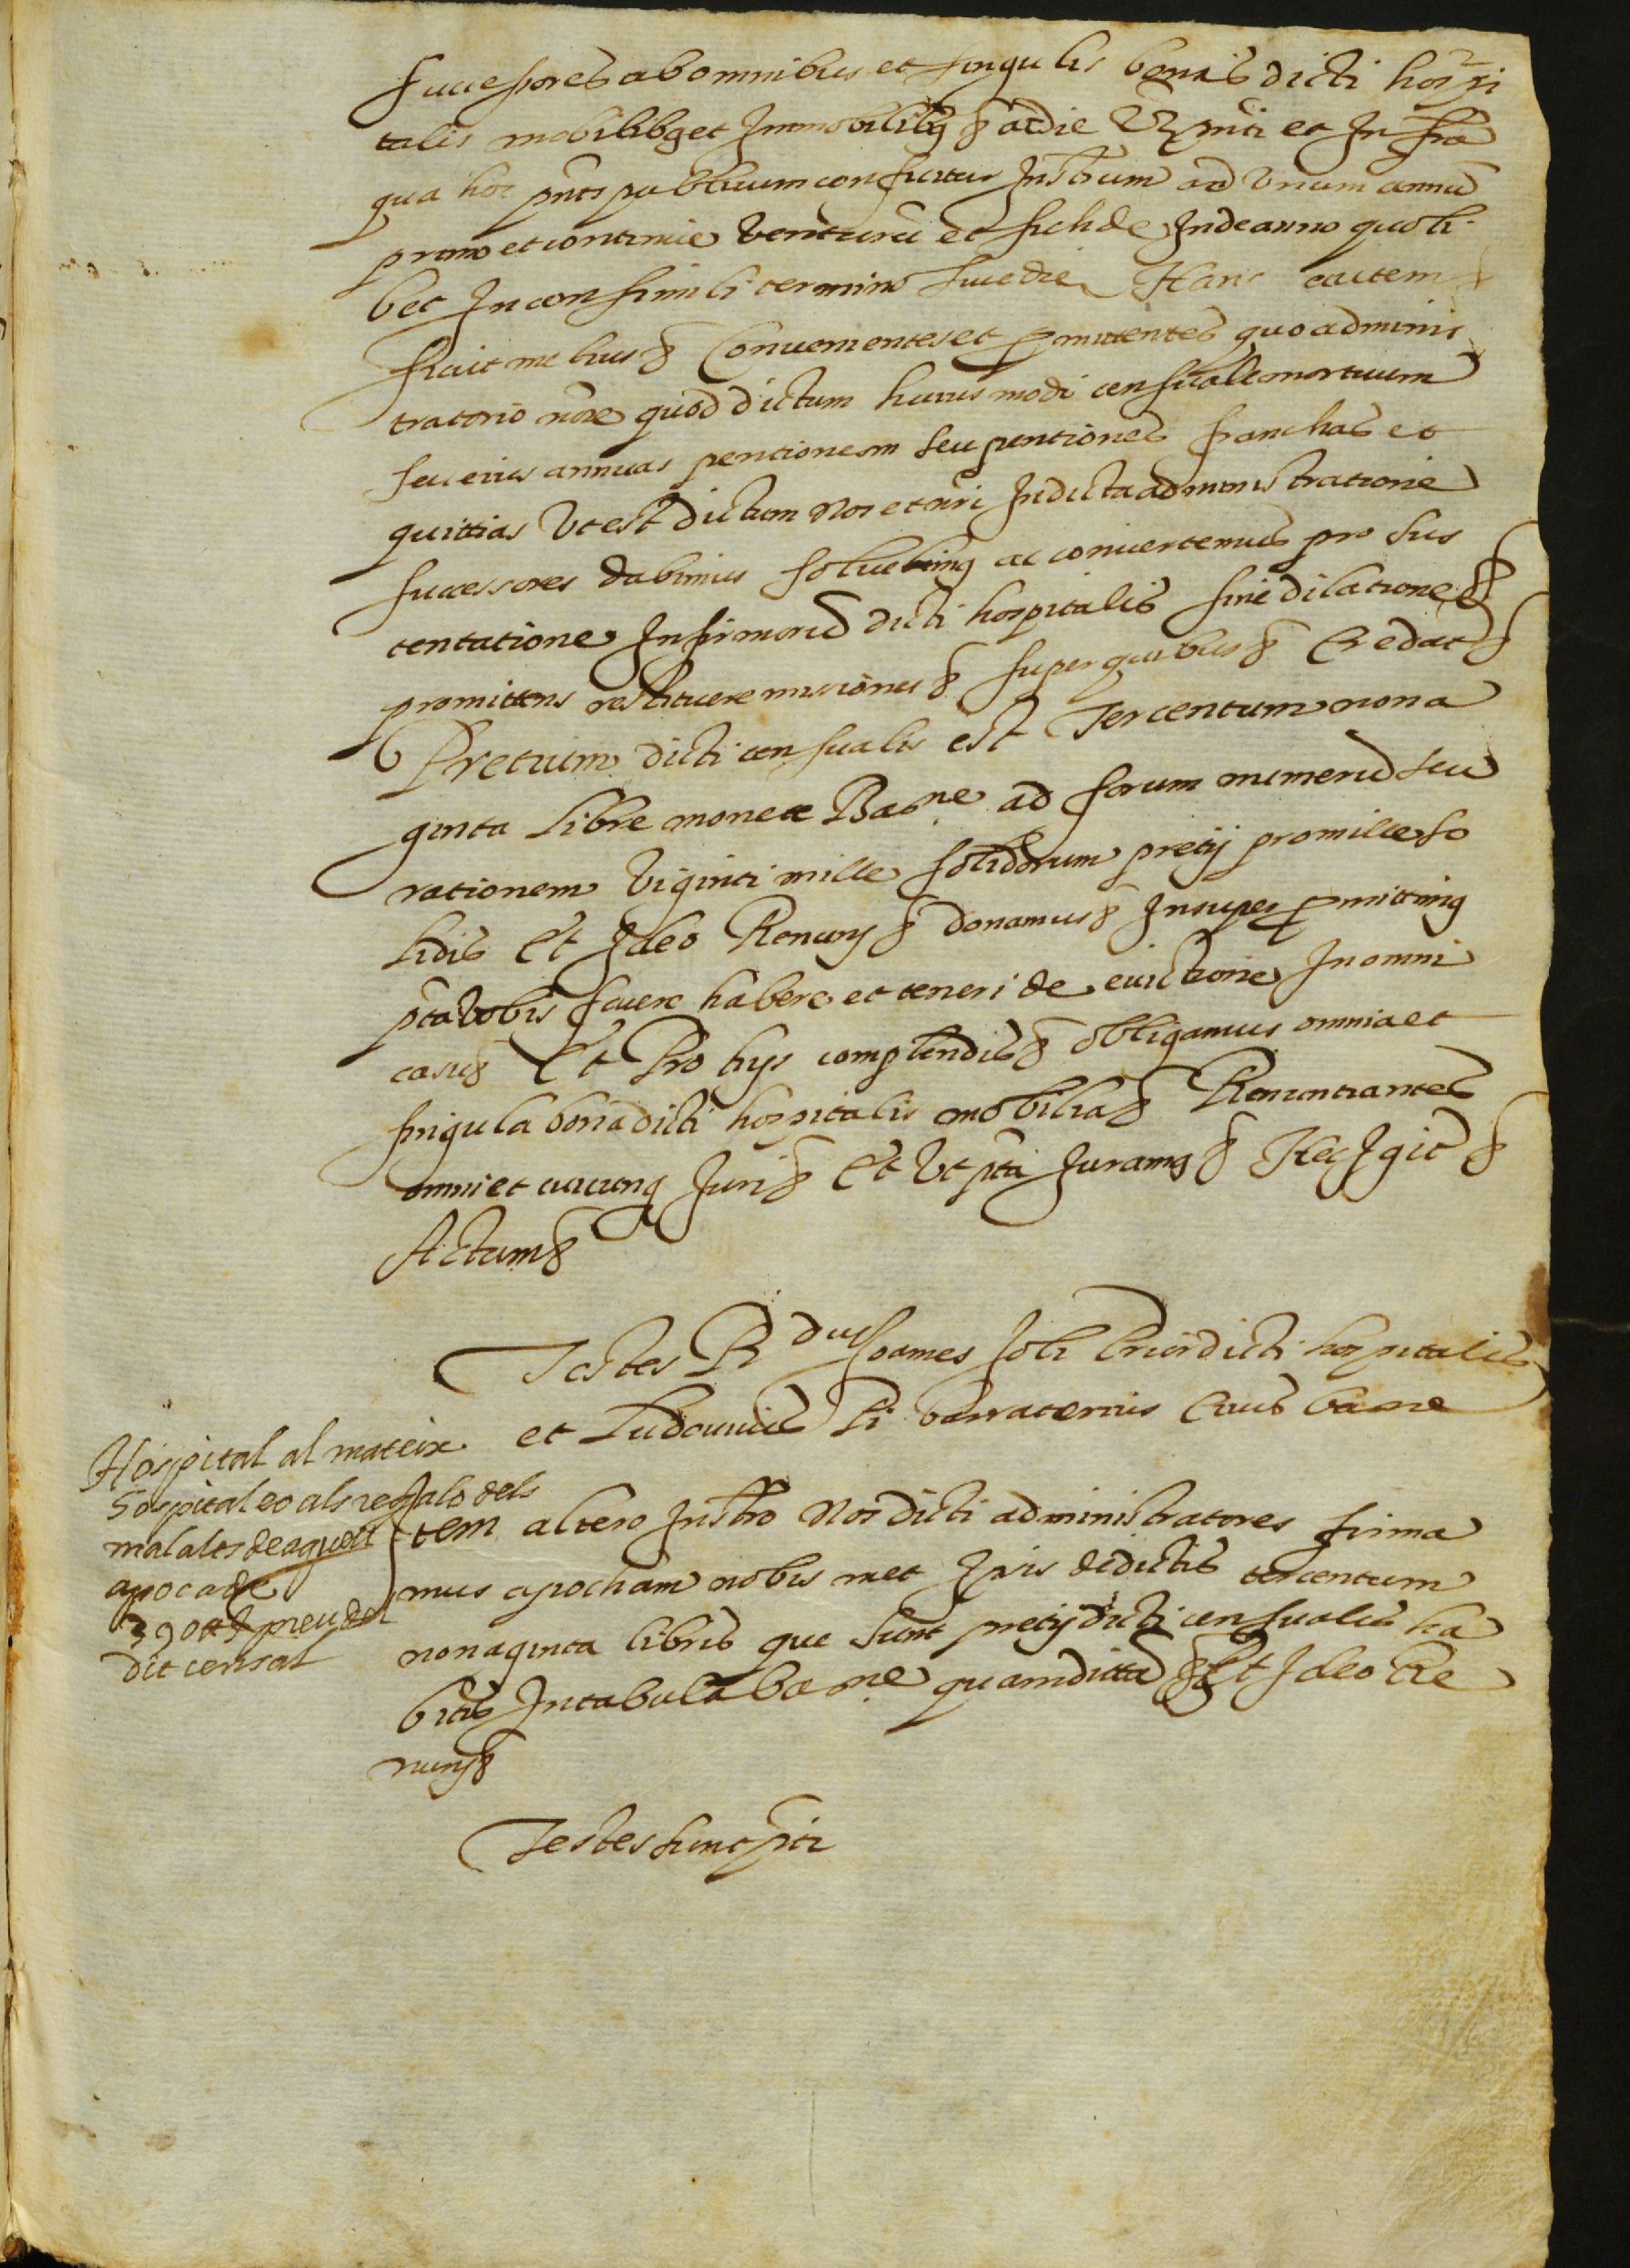 successores ab omnibus et singulis bonis dicti hospi
talis mobilibus et Immobilibus & a die et Infra
qua hoc pñts publicum conficitur Instrum ad unum annũ
primo et continue venturũ et sic de Inde anno quoli
bet In consimili termino sive die Hanc autem &
fait melius & Convenientes et pmittentes quo adminis
tratorio nõie quod dictum huiusmodi censuale mortuum
seu eius annuas pentionem seu pentiones franchas et
quittias Ut est dictum Nos et nri In dicta administratione
successores dabimus solvemusq ac convertemus pro sus
tentatione Infirmorũ dicti hospitalis sine dilatione &
promittens restituere missiones & super quibus & Credat &
Pretium dicti censualis est Tercentum nona
ginta libre monete Barne ad forum numerũ seu
rationem viginti mille solidorum pretij pro mille so
lidis Et Ideo Renunj & donamus & Insuper pmittimq
pta vobis facere habere et teneri de evictione In omni
casu & Et Pro hijs complendis & obligamus omnia et
singula bona dicti hospitalis mobilia & Renuntiantes
omni et cuicunq Juri & Et Ut pta Juramq & Hec Igit &
Actum &
Testes Rdus Joannes Soli Prior dicti hospitalis
et Ludovicus Pi barraterius Civis barne
Hospital al mateix
Hospital eo als regalo dels
malalts de aquell
apoca de
390 ll preu del
dit censal
Item altero Instro Nos dicti administratores firma
mus apocham nobis met Ipsis de dictis tercentum
nonaginta libris que sunt pretij dicti censualis ha
bitis In tabula barne quamdittã & Et Ideo Re
nunj &
Testes sunt pti